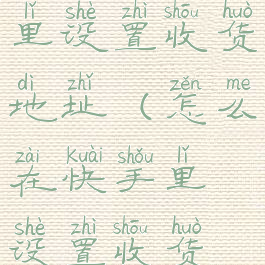 lǐ shè zhì shōu huò
里设置收货
dì zhǐ zěn me
地址(怎么
zài Kuài shǒu lǐ
在快手里
shè zhì shōu huò
设置收货